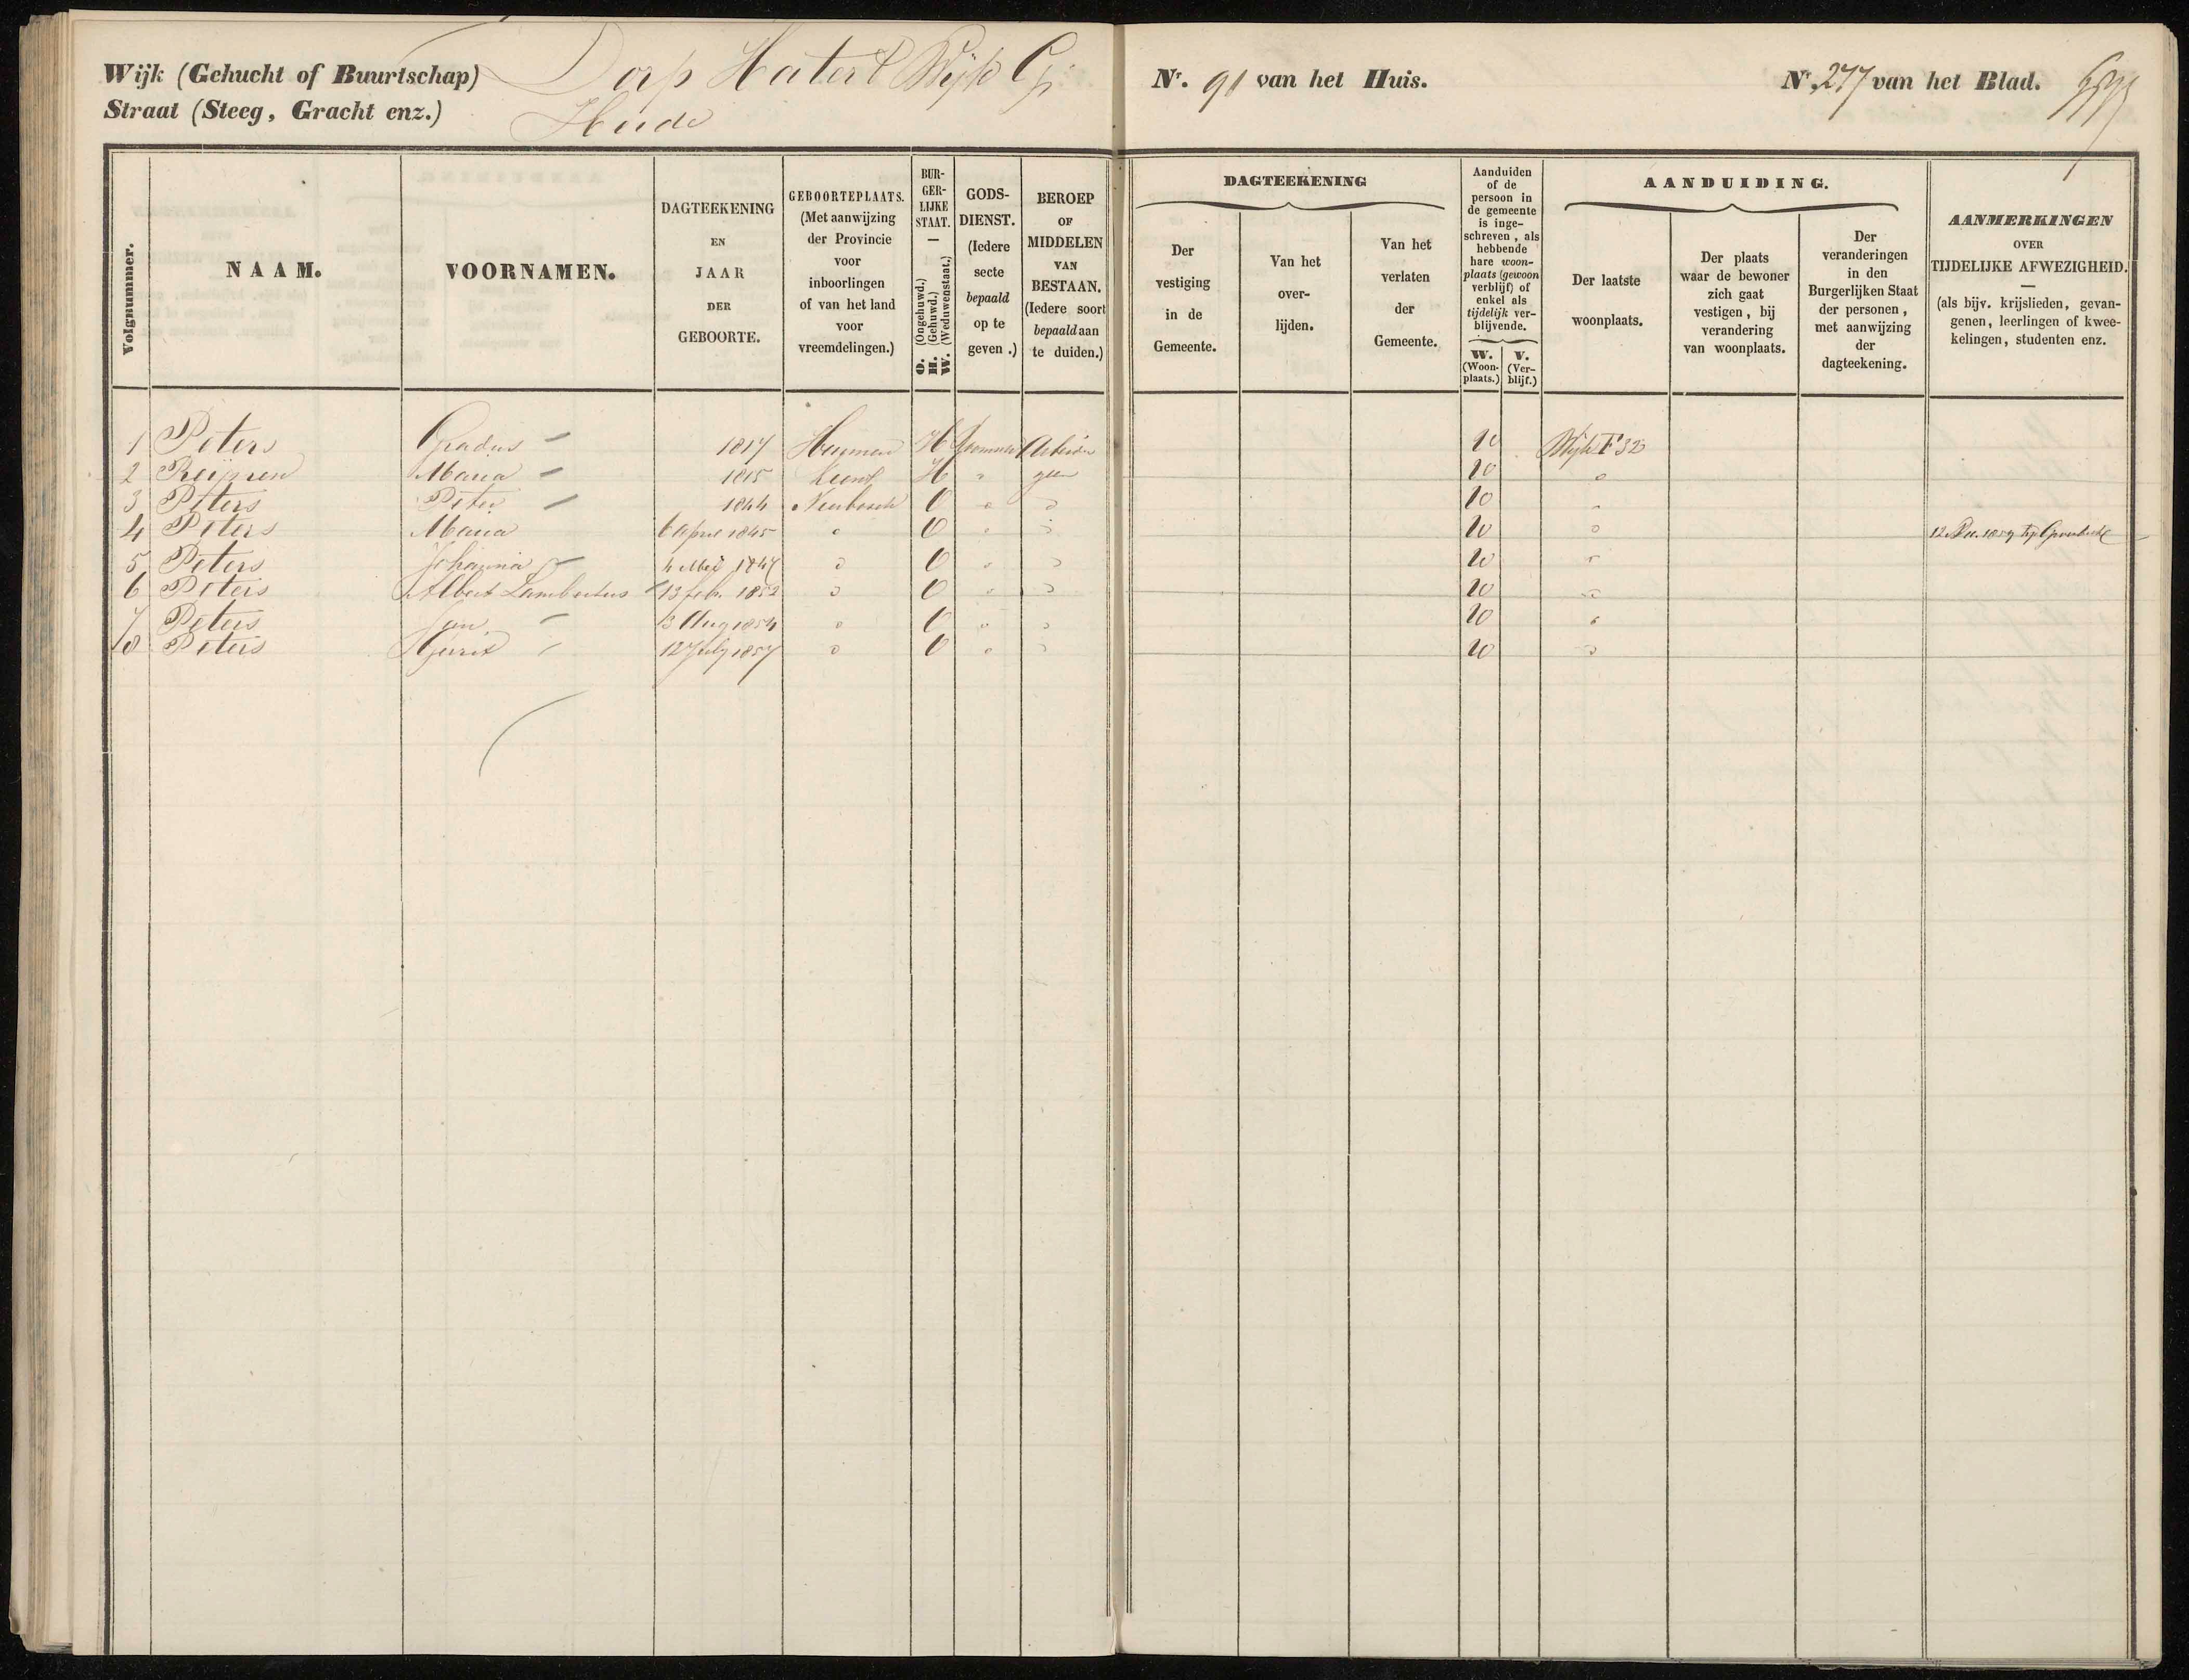 Wijk (Gehucht of Buurtschap) Dorp Hatert Wijk G
Straat (Steeg, Gracht enz.) Heide
Nr. 91 van het Huis.
Nr. 277 van het Blad.
Volgnummer.
NAAM.
VOORNAMEN.
DAGTEEKENING
EN
JAAR
DER
GEBOORTE.
GEBOORTEPLAATS.
(Met aanwijzing
der Provincie
voor
inboorlingen
of van het land
voor
vreemdelingen.)
BUR-
GER-
LIJKE
STAAT.
—
O. (Ongehuwd.)
H. (Gehuwd.)
W. (Weduwenstaat.)
GODS-
DIENST.
(Iedere
secte
bepaald
op te
geven.)
BEROEP
OF
MIDDELEN
VAN
BESTAAN.
(Iedere soort
bepaald aan
te duiden.)
DAGTEEKENING
Der
vestiging
in de
Gemeente.
Van het
over-
lijden.
Van het
verlaten
der
Gemeente.
Aanduiden
of de
persoon in
de gemeente
is inge-
schreven, als
hebbende
hare woon-
plaats (gewoon
verblijf) of
enkel als
tijdelijk ver-
blijvende.
W.
(Woon-
plaats.)
V.
(Ver-
blijf.)
AANDUIDING.
Der laatste
woonplaats.
Der plaats
waar de bewoner
zich gaat
vestigen, bij
verandering
van woonplaats.
Der
veranderingen
in den
Burgerlijken Staat
der personen,
met aanwijzing
der
dagteekening.
AANMERKINGEN
OVER
TIJDELIJKE AFWEZIGHEID.
—
(als bijv. krijslieden, gevan-
genen, leerlingen of kwee-
kelingen, studenten enz.
1 Peters Gradus 1817 Heumen H Roomsch Arbeider W Wijk F 32
2 Reijnen Maria 1815 H " geen W "
3 Peters Peter 1844 Neerbosch O " " W "
4 Peters Maria 6 April 1845 " O " " W " 12 Dec. 1859
5 Peters Johanna 4 Mei 1847 " O " " W "
6 Peters Albert Lambertus 13 febr. 1852 " O " " W "
7 Peters Jan 3 Aug 1854 " O " " W "
8 Peters Gerrit 12 July 1857 " O " " W "